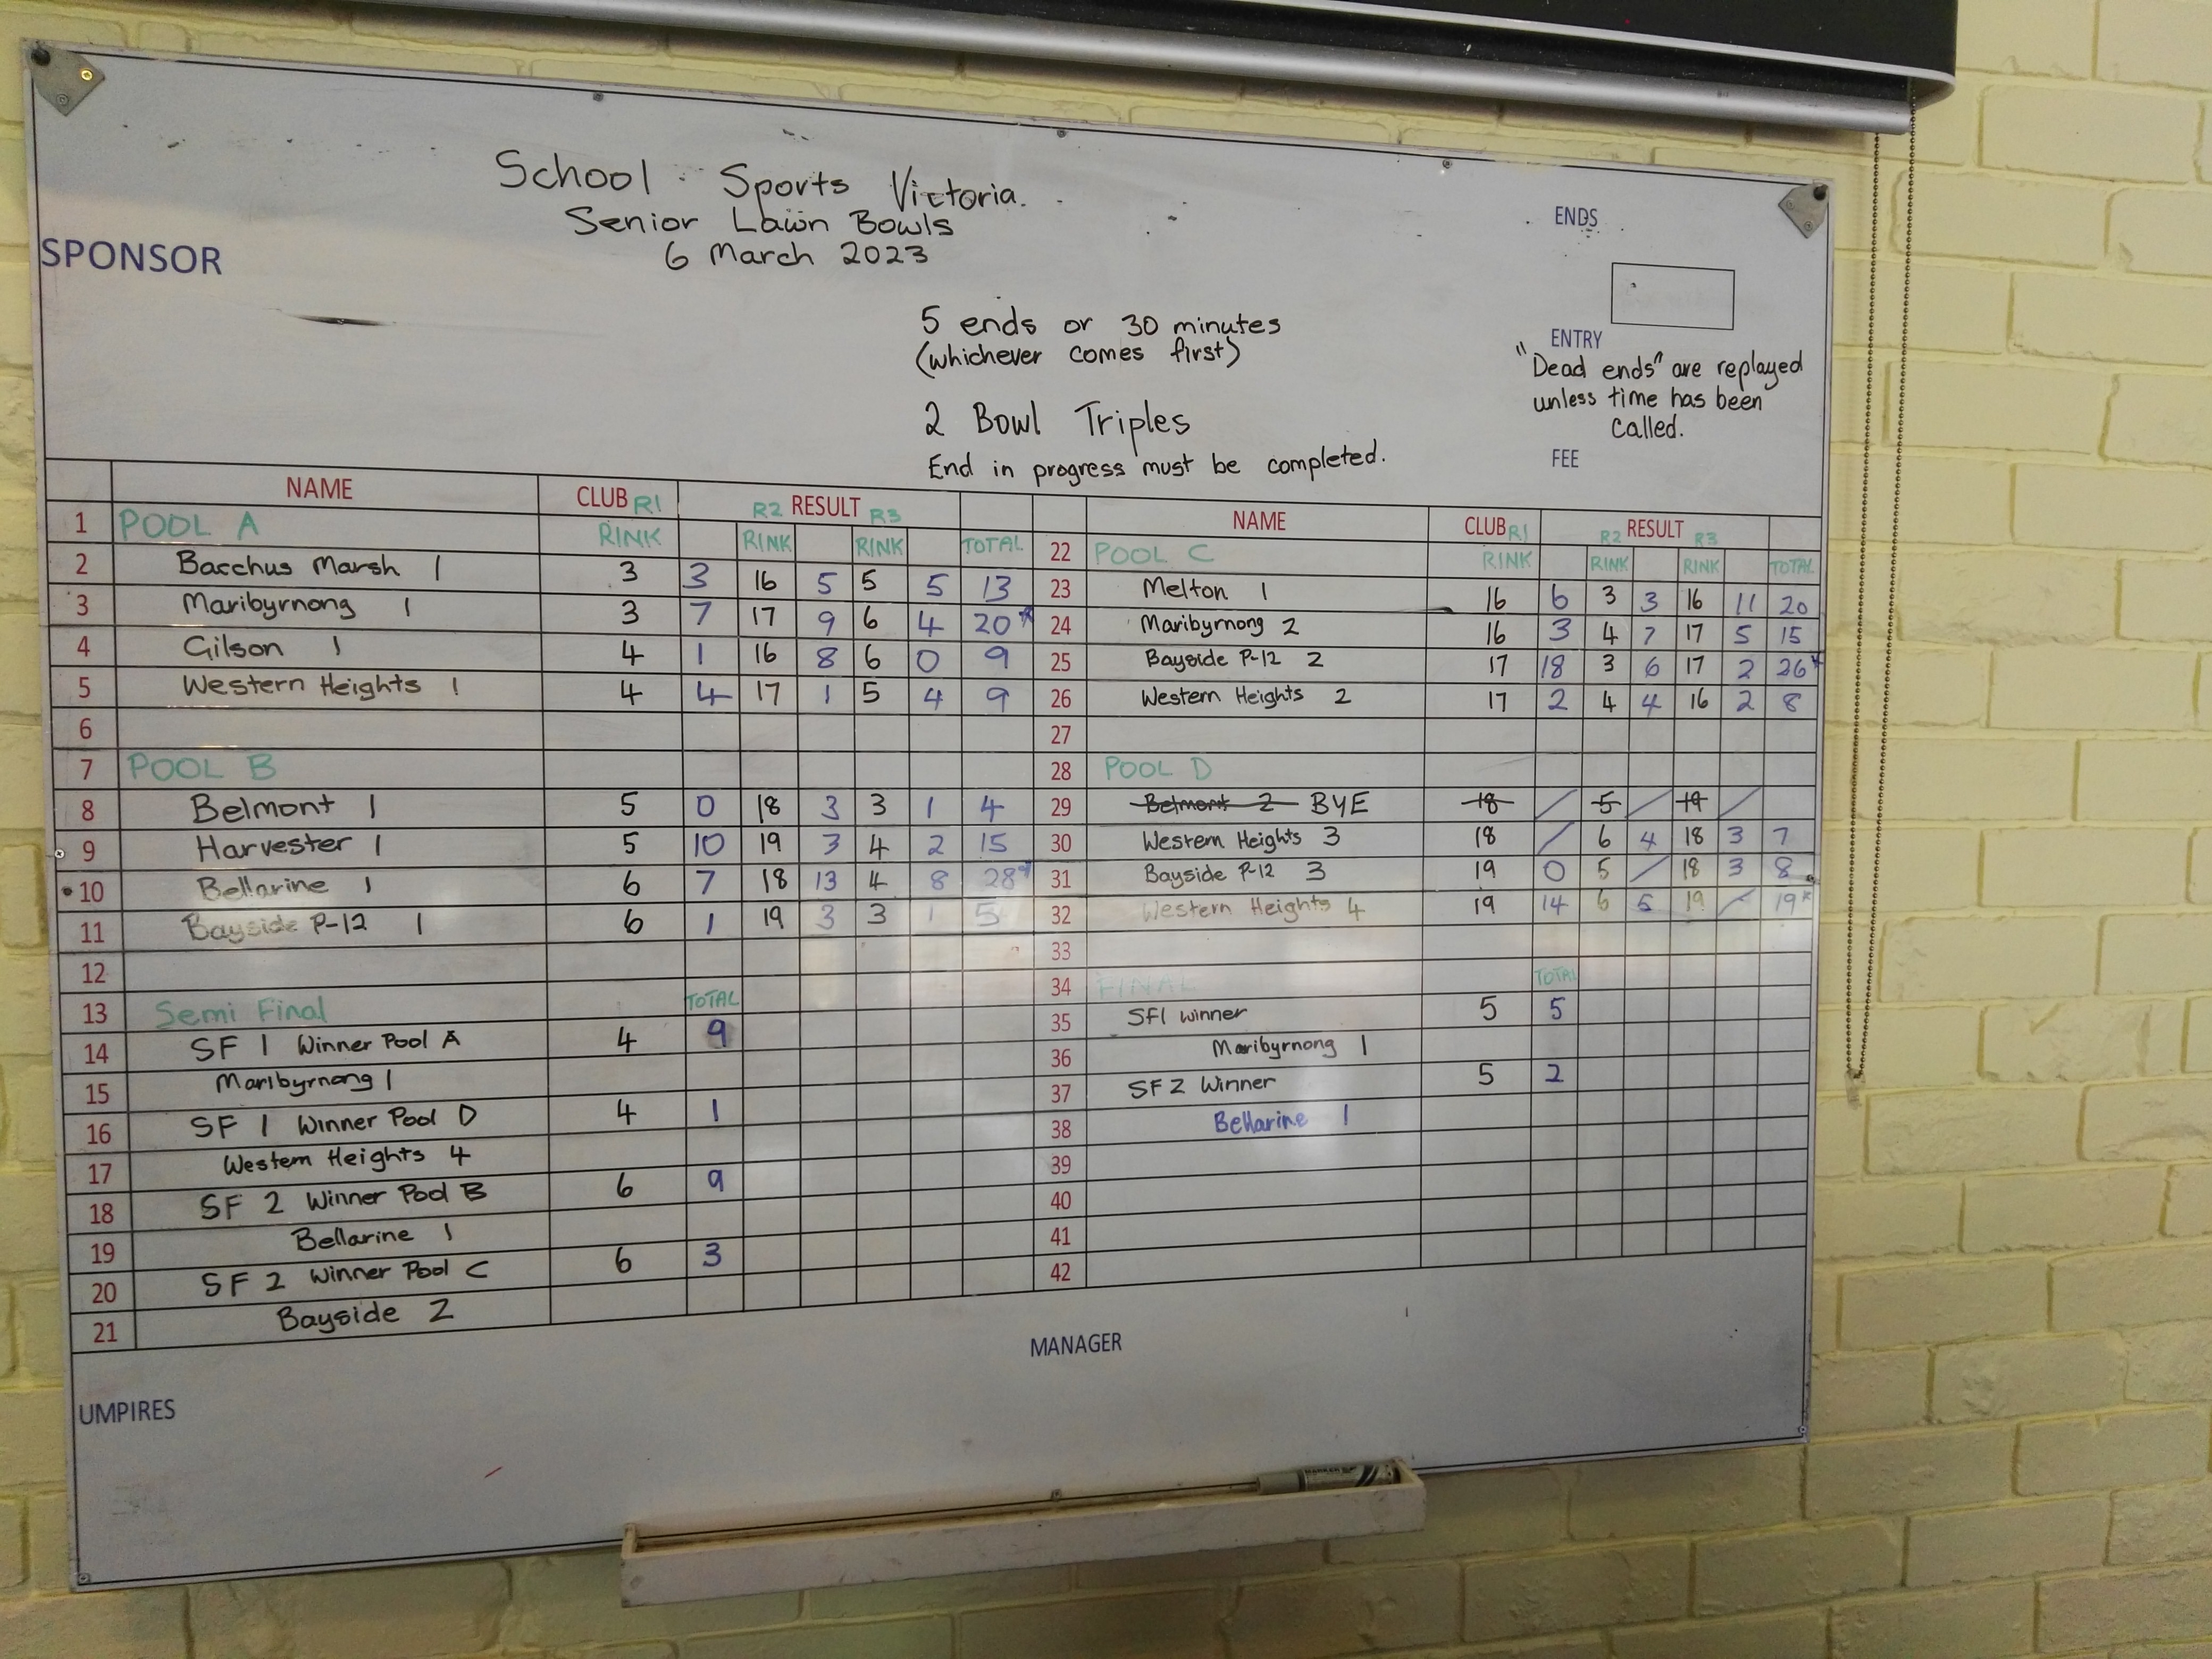 School Sports Victoria.
Senior Lawn Bowls
6 March 2023
SPONSOR
ENDS
5 ends or 30 minutes
(whichever comes first)
ENTRY
"Dead ends" are replayed
unless time has been
called.
2 Bowl Triples
End in progress must be completed.
FEE
NAME CLUB R1 R2 RESULT R3
1 POOL A RINK RINK RINK TOTAL
2 Bacchus Marsh 1 3 3 16 5 5 5 13
3 Maribyrnong 1 3 7 17 9 6 4 20*
4 Gilson 1 4 1 16 8 6 0 9
5 Western Heights 1 4 4 17 1 5 4 9
6
7 POOL B
8 Belmont 1 5 0 18 3 3 1 4
9 Harvester 1 5 10 19 3 4 2 15
10 Bellarine 1 6 7 18 13 4 8 28*
11 Bayside P-12 1 6 1 19 3 3 1 5
12
13 Semi Final TOTAL
14 SF 1 Winner Pool A 4 9
15 Maribyrnong 1
16 SF 1 Winner Pool D 4 1
17 Western Heights 4
18 SF 2 Winner Pool B 6 9
19 Bellarine 1
20 SF 2 Winner Pool C 6 3
21 Bayside 2
NAME CLUB R1 R2 RESULT R3
22 POOL C RINK RINK RINK TOTAL
23 Melton 1 16 6 3 3 16 11 20
24 Maribyrnong 2 16 3 4 7 17 5 15
25 Bayside P-12 2 17 18 3 6 17 2 26*
26 Western Heights 2 17 2 4 4 16 2 8
27
28 POOL D
29 Belmont 2 BYE 18 / 5 / 19 /
30 Western Heights 3 18 / 6 4 18 3 7
31 Bayside P-12 3 19 0 5 / 18 3 8
32 Western Heights 4 19 14 6 5 19 / 19*
33
34 FINAL TOTAL
35 SF1 winner 5 5
36 Maribyrnong 1
37 SF2 Winner 5 2
38 Bellarine 1
39
40
41
42
MANAGER
UMPIRES